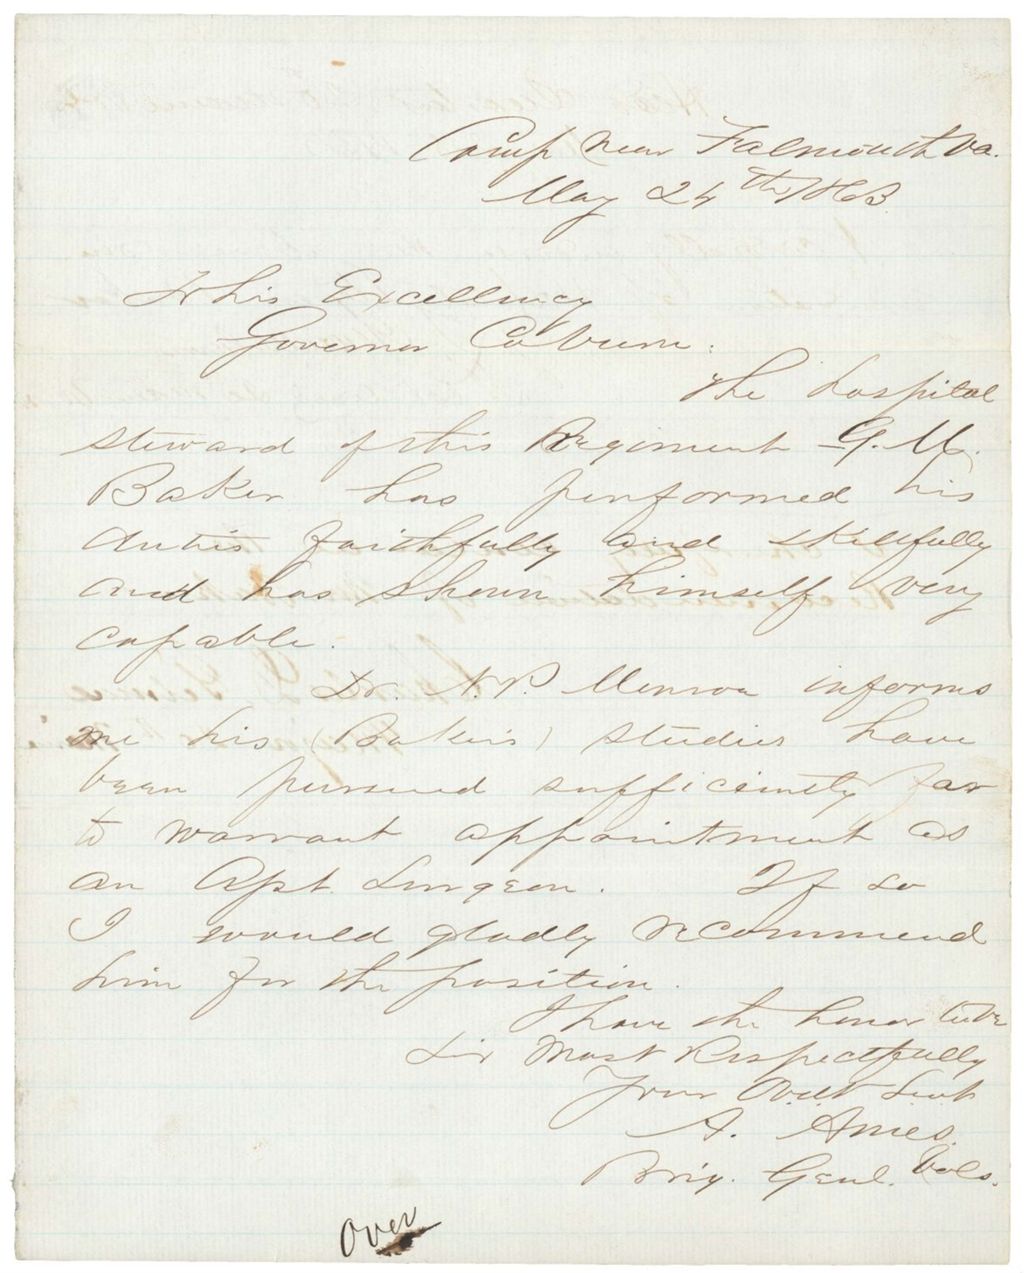 Camp Near Falmouth Va.
May 24th 1863
To his Excellency
Governor Coburn.
The hospital
steward of this Regiment G. M.
Baker has performed his
duties faithfully and skillfully
and has shown himself very
capable.
Dr. N. P. Monroe informs
me his (Baker's) studies have
been pursued sufficiently far
to warrant appointment as
an Asst. Surgeon. If so
I would gladly recommend
him for the position.
I have the honor to be
Sir Most Respectfully
Your Obdt Servt
A. Ames.
Brig. Genl. Vols.
Over